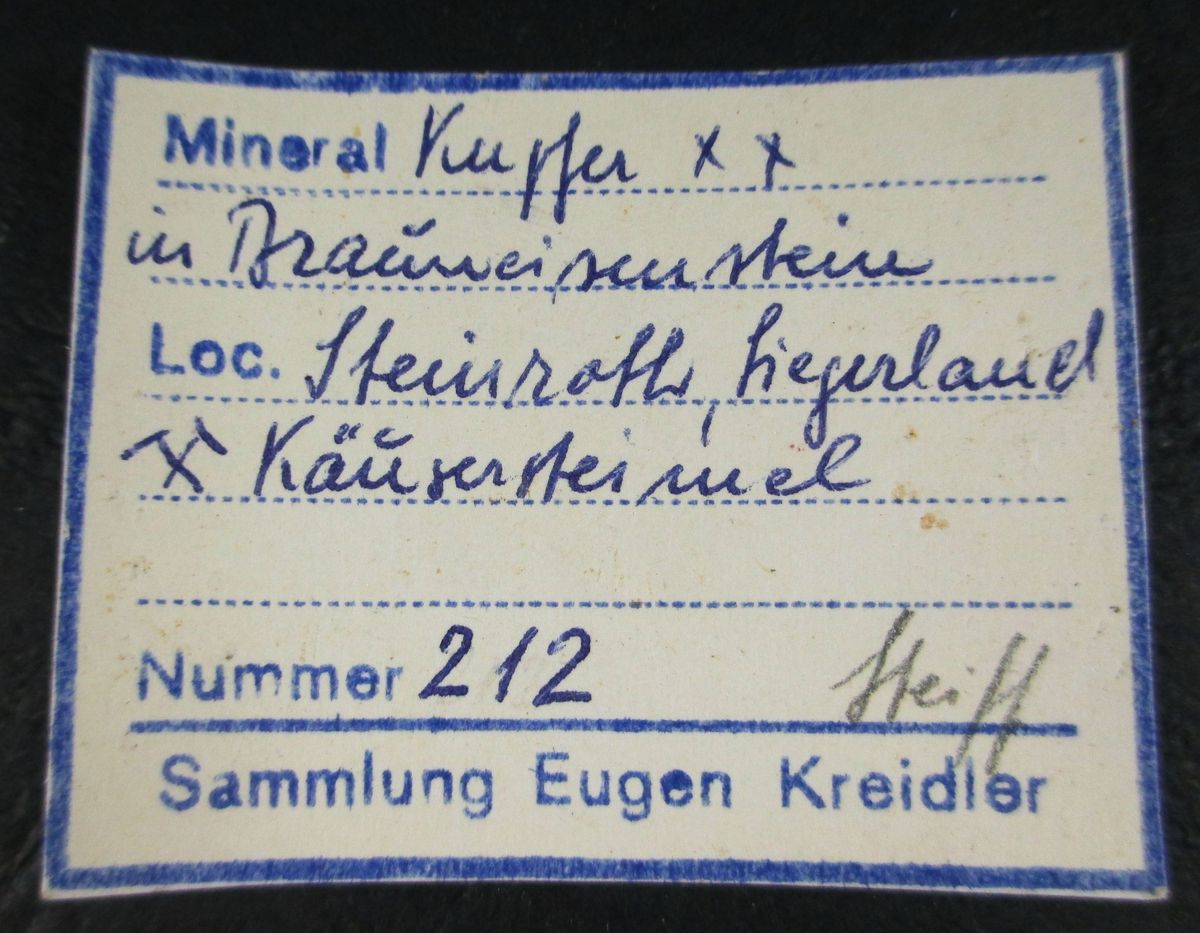 Mineral Kupfer x x
in Brauneisenstein
Loc. Steinroth, Siegerland
⚒ Käusersteimel
Nummer 212
Steiff
Sammlung Eugen Kreidler